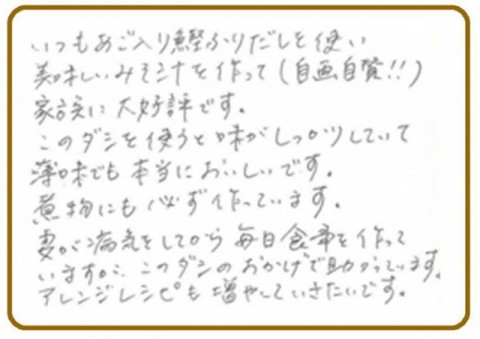 いつもあご入り鰹ふりだしを使い
美味しいみそ汁を作って(自画自賛!!)
家族に大好評です。
このダシを使うと味がしっかりしていて
薄味でも本当においしいです。
煮物にも必ず作っています。
妻が病気をしてから毎日食事を作って
いますが、このダシのおかげで助かっています。
アレンジレシピも増やしていきたいです。